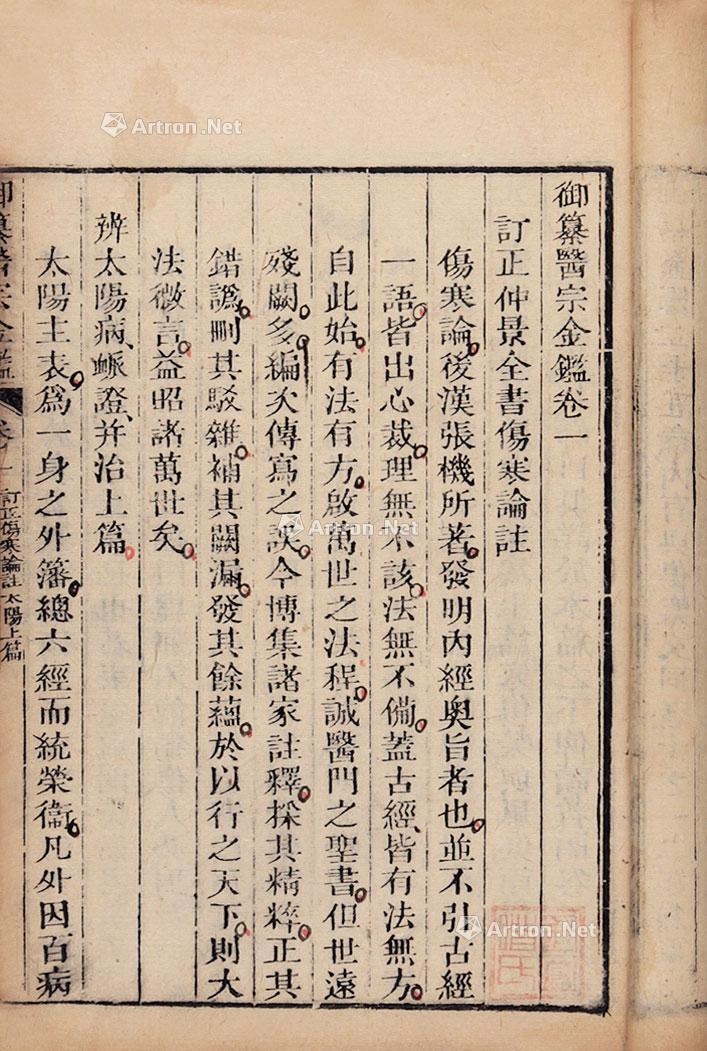 御纂醫宗金鑑卷一
訂正仲景全書傷寒論註
傷寒論後漢張機所著發明內經奧旨者也並不引古經
一語皆出心裁理無不該法無不備蓋古經皆有法無方
自此始有法有方啟萬世之法程誠醫門之聖書但世遠
殘闕多編次傳寫之誤今博集諸家註釋採其精粹正其
錯譌刪其駁雜補其闕漏發其餘蘊於以行之天下則大
法微言益昭諸萬世矣
辨太陽病脈證并治上篇
太陽主表爲一身之外藩總六經而統榮衞凡外因百病
御纂醫宗金鑑 卷一 訂正傷寒論註 太陽上篇
Artron.Net
Artron.Net
Artron.Net